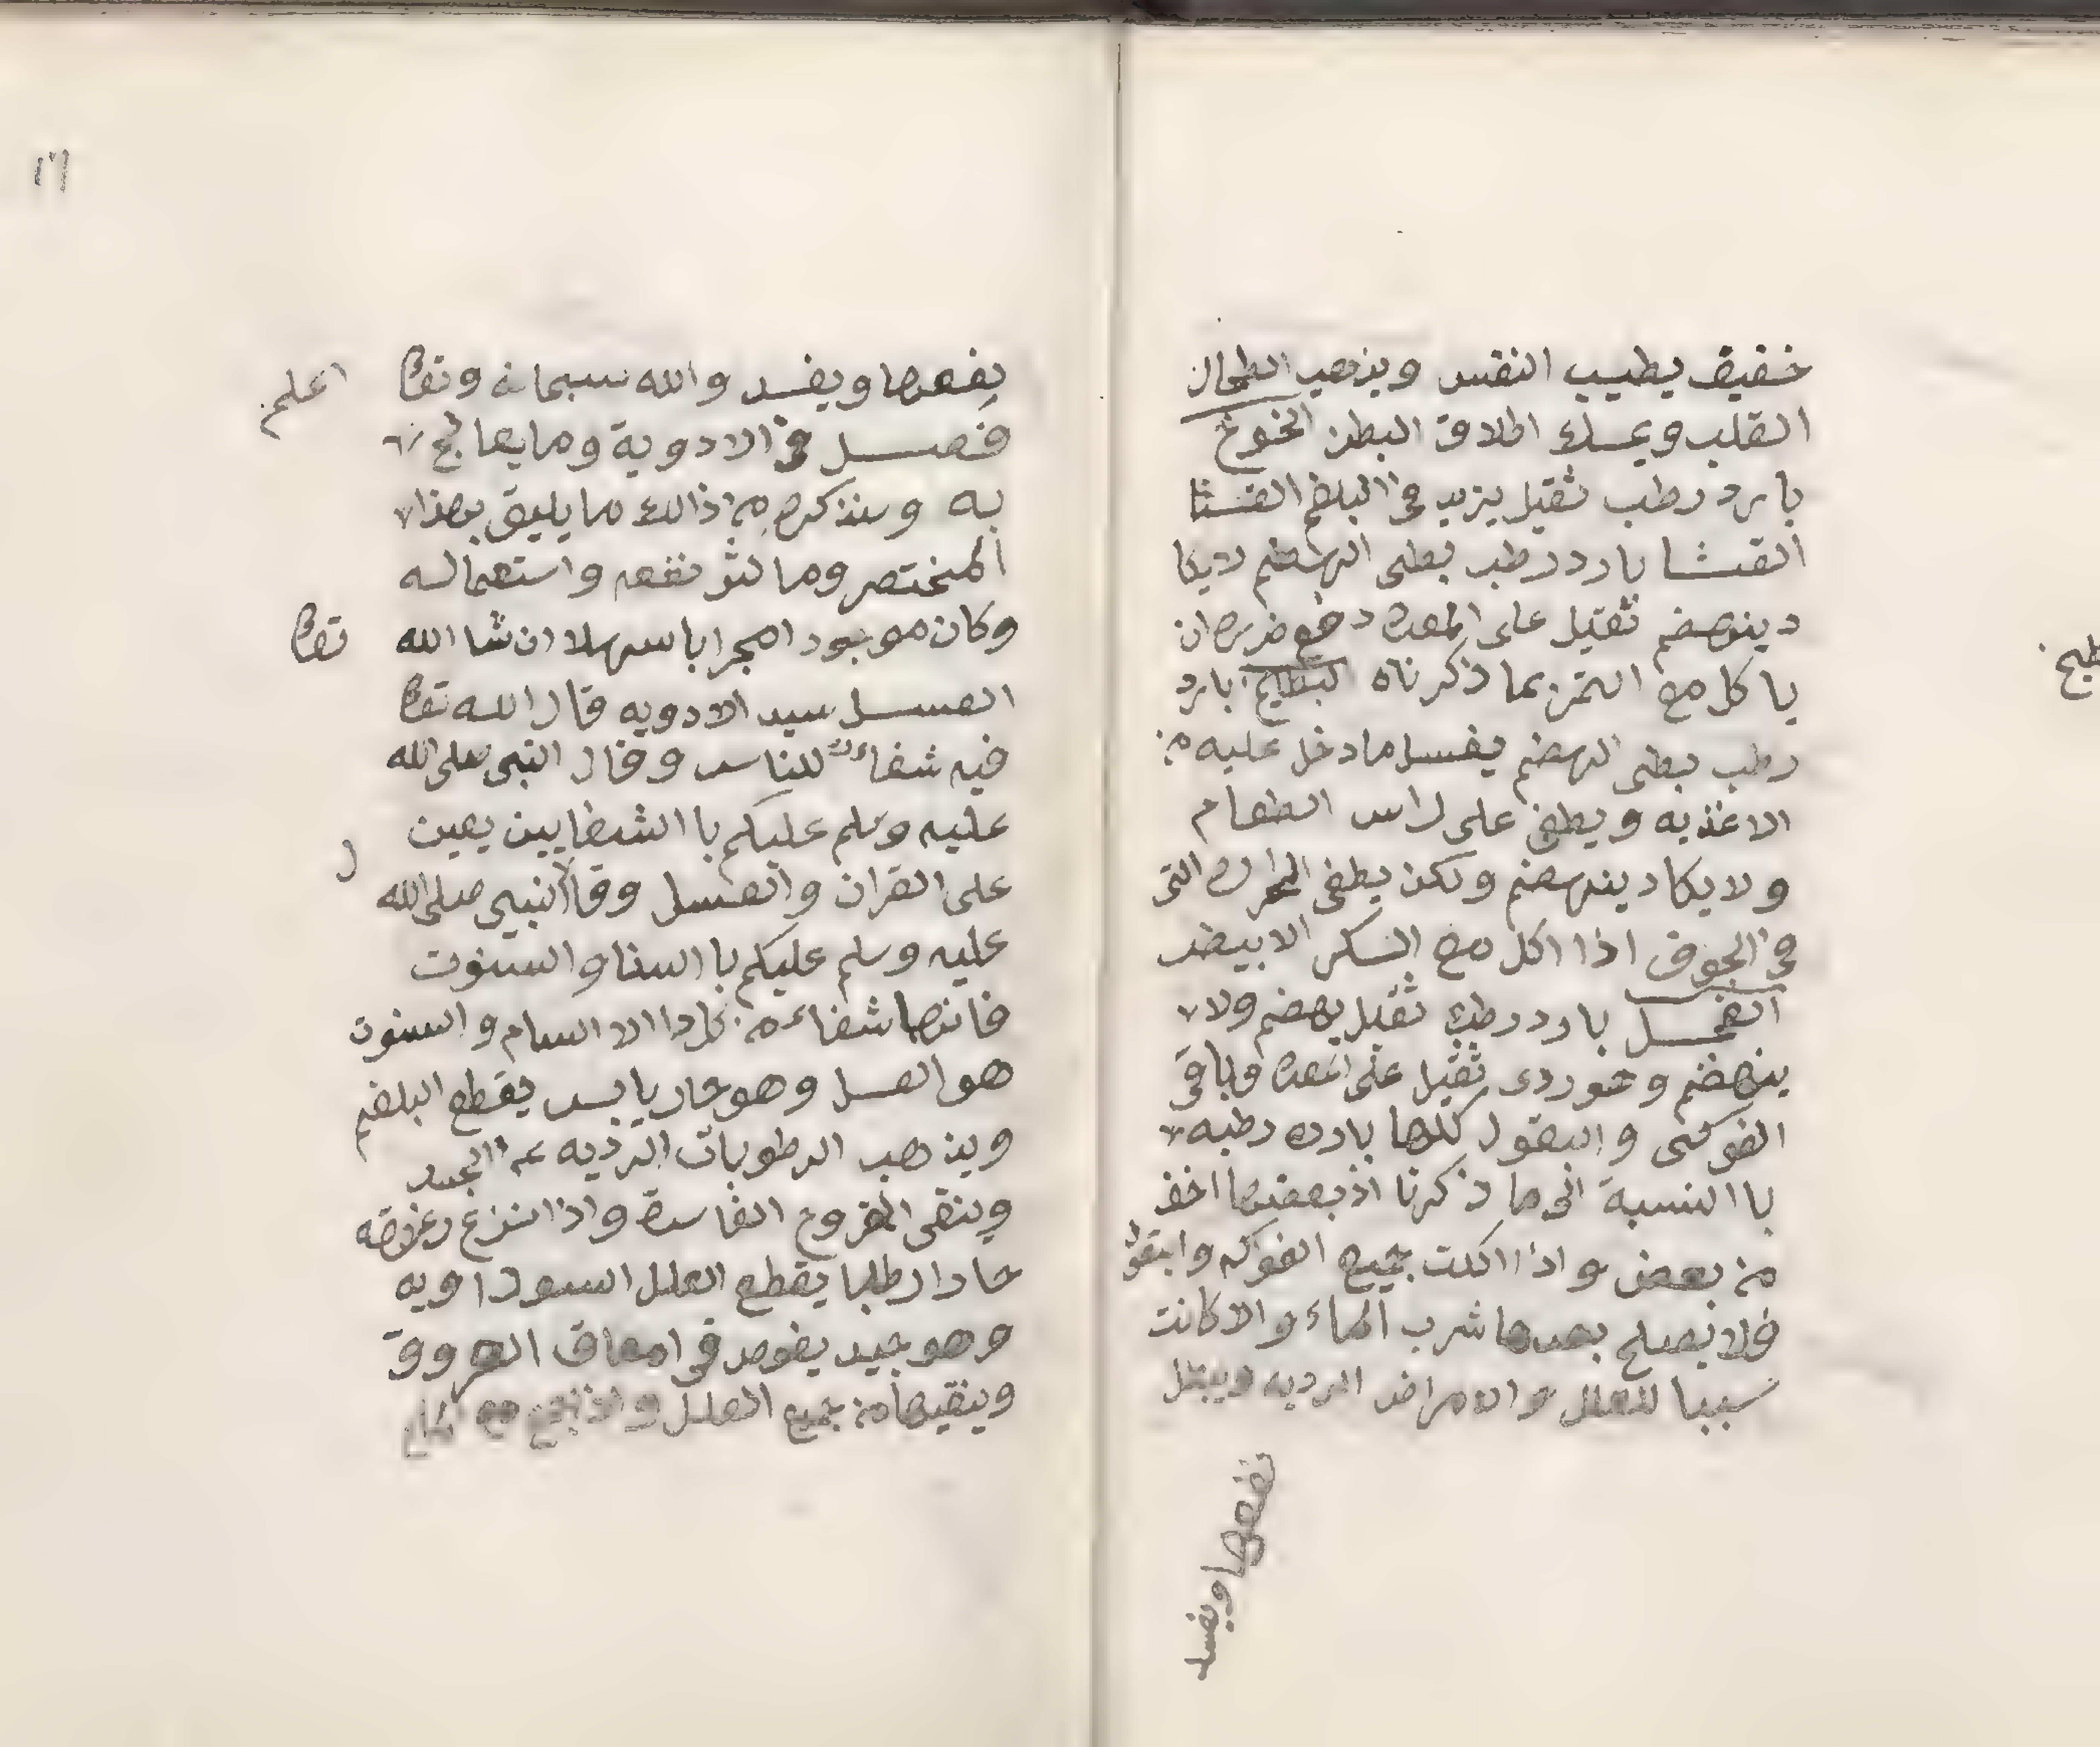 خفيف يطيب النفس ويذهب الطحال
القلب ويمسك اطلاق البطن الخوخ
بارد رطب ثقيل يزيد في البلغم القثا
القثا بارد رطب بطى الهضم لايكا
د ينهضم ثقيل على المعده دفع ضرره ان
ياكل مع التمر بما ذكرناه البطيخ بارد
رطب بطى الهضم يفسد ما دخل عليه من
الاغذيه ويطفى على راس الطعام
ولا يكاد ينهضم ولكن يطفى الحراره التى
في الجوف اذا اكل مع السكر الابيض
الفجل بارد رطب ثقيل يهضم ولا
ينهضم وهو ردى ثقيل على المعده وباقى
الفوكى والبقول كلها بارده رطبه
با النسبة الى ما ذكرنا اذ بعضها اخف
من بعض واذا اكلت جميع الفواكه والبقول
فلا يصلح بعدها شرب الماء والا كانت
سببا للعلل والامراض الرديه ويبطل
نفعها ويفسد
طيخ
١٦
نفعها ويفسد والله سبحانه وتعالى اعلم
فصل في الادوية وما يعالج
به وسنذكره من ذالك ما يليق بهذا
المختصر وما كثر نفعه واستعماله
وكان موجودا مجرابا سهلا ان شا الله تعالى
العسل سيد الادويه قال الله تعالى
فيه شفاء للناس وقال النبى صلى الله
عليه وسلم عليكم با الشفايين يعين
على القران والعسل وقال النبي صلى الله
عليه وسلم عليكم با السنا والسنوت
فانها شفاء من كل دا الا السام والسنوت
هو العسل وهو حار يابس يقطع البلغم
ويذهب الرطوبات الرديه عن الجسد
وينقى القروح الفاسدة واذا انزع رغوته
حارا رطبا يقطع العلل السوداويه
وهو جيد يغوص في امعاق العروق
وينقيها من جميع العلل